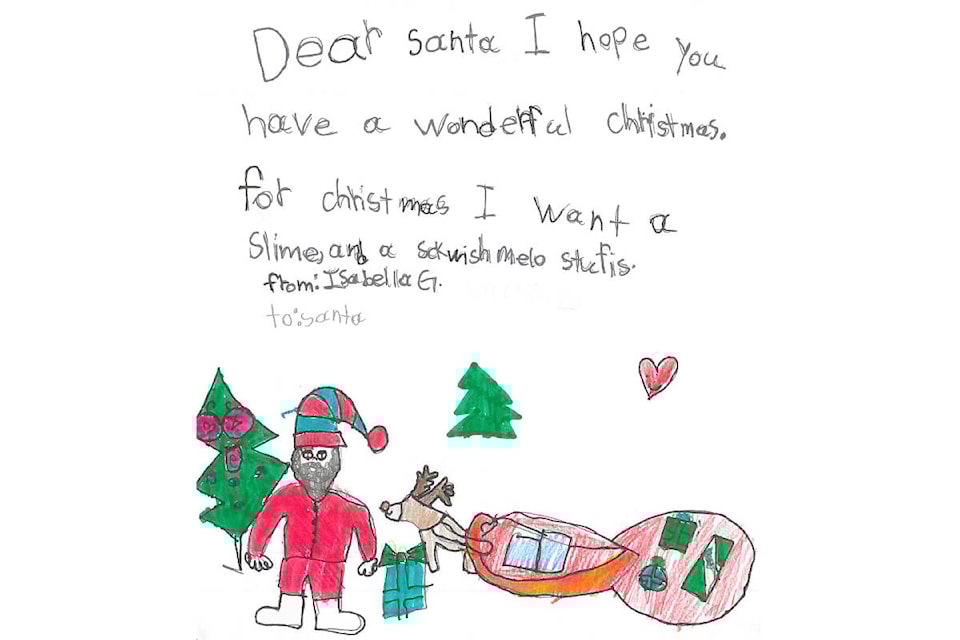 Dear santa I hope you
have a wonderful christmas.
for christmas I want a
slime, and a sckwishmelo stufis.
from: Isabella G.
to: santa